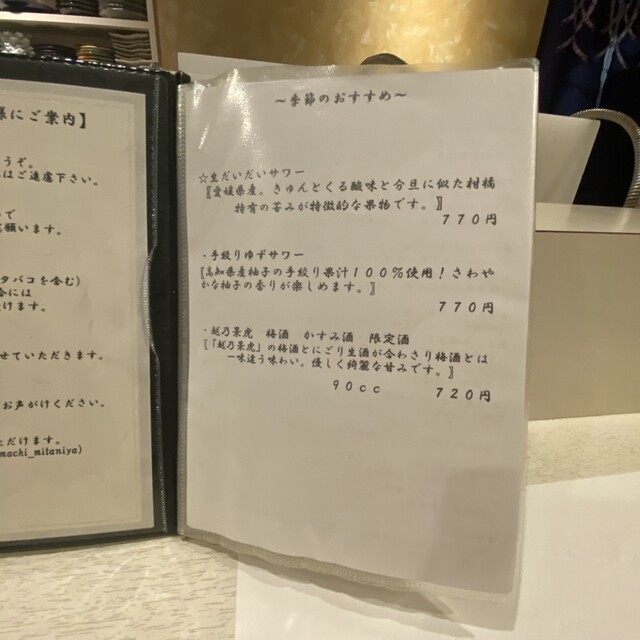 様にご案内】
うぞ。
はご遠慮下さい。
で
願います。
タバコを含む)
合には
けます。
せていただきます。
お声がけください。
ただけます。
machi_mitaniya)
～季節のおすすめ～
☆生だいだいサワー
〖愛媛県産。きゅんとくる酸味と今旦に似た柑橘
特有の苦みが特徴的な果物です。〗
770円
・手絞りゆずサワー
〖高知県産柚子の手絞り果汁100％使用！さわや
かな柚子の香りが楽しめます。〗
770円
・越乃景虎 梅酒 かすみ酒 限定酒
〖「越乃景虎」の梅酒とにごり生酒が合わさり梅酒とは
一味違う味わい。優しく綺麗な甘みです。〗
90cc 720円